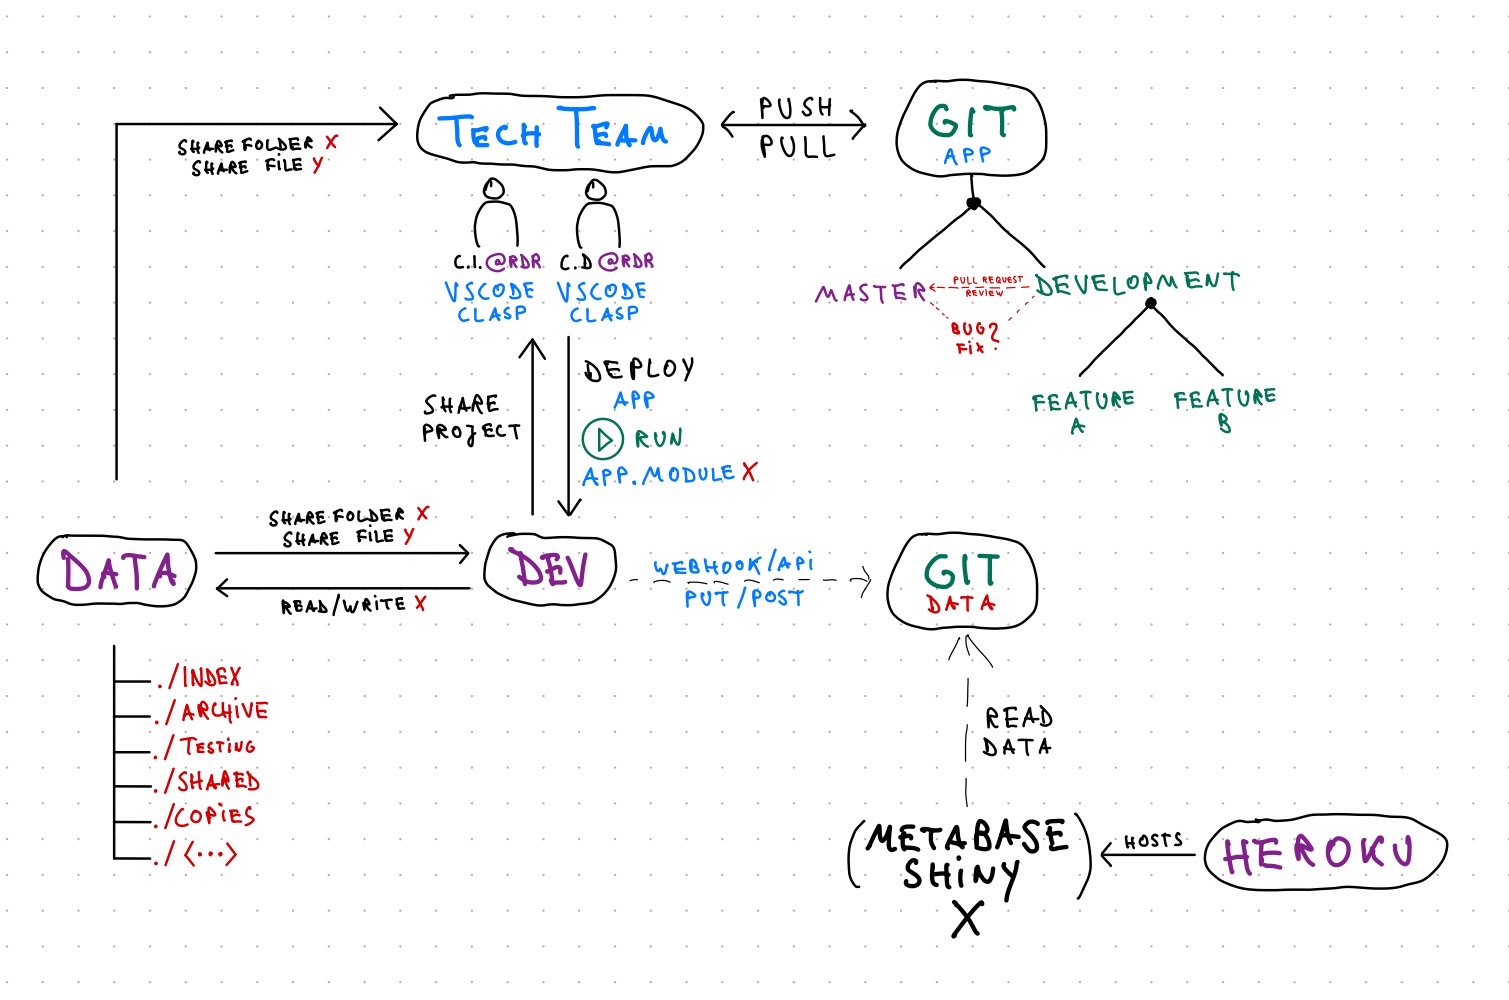 TECH TEAM
PUSH
PULL
GIT
APP
SHARE FOLDER X
SHARE FILE Y
C.I. @RDR
VSCODE
CLASP
C.D @RDR
VSCODE
CLASP
MASTER
PULL REQUEST
REVIEW
DEVELOPMENT
BUG?
FIX?
FEATURE
A
FEATURE
B
SHARE
PROJECT
DEPLOY
APP
RUN
APP.MODULE X
SHARE FOLDER X
SHARE FILE Y
DATA
READ/WRITE X
DEV
WEBHOOK/APi
PUT/POST
GIT
DATA
./INDEX
./ARCHIVE
./TESTING
./SHARED
./COPiES
./<...>
READ
DATA
(METABASE
SHiNY)
X
HOSTS
HEROKU